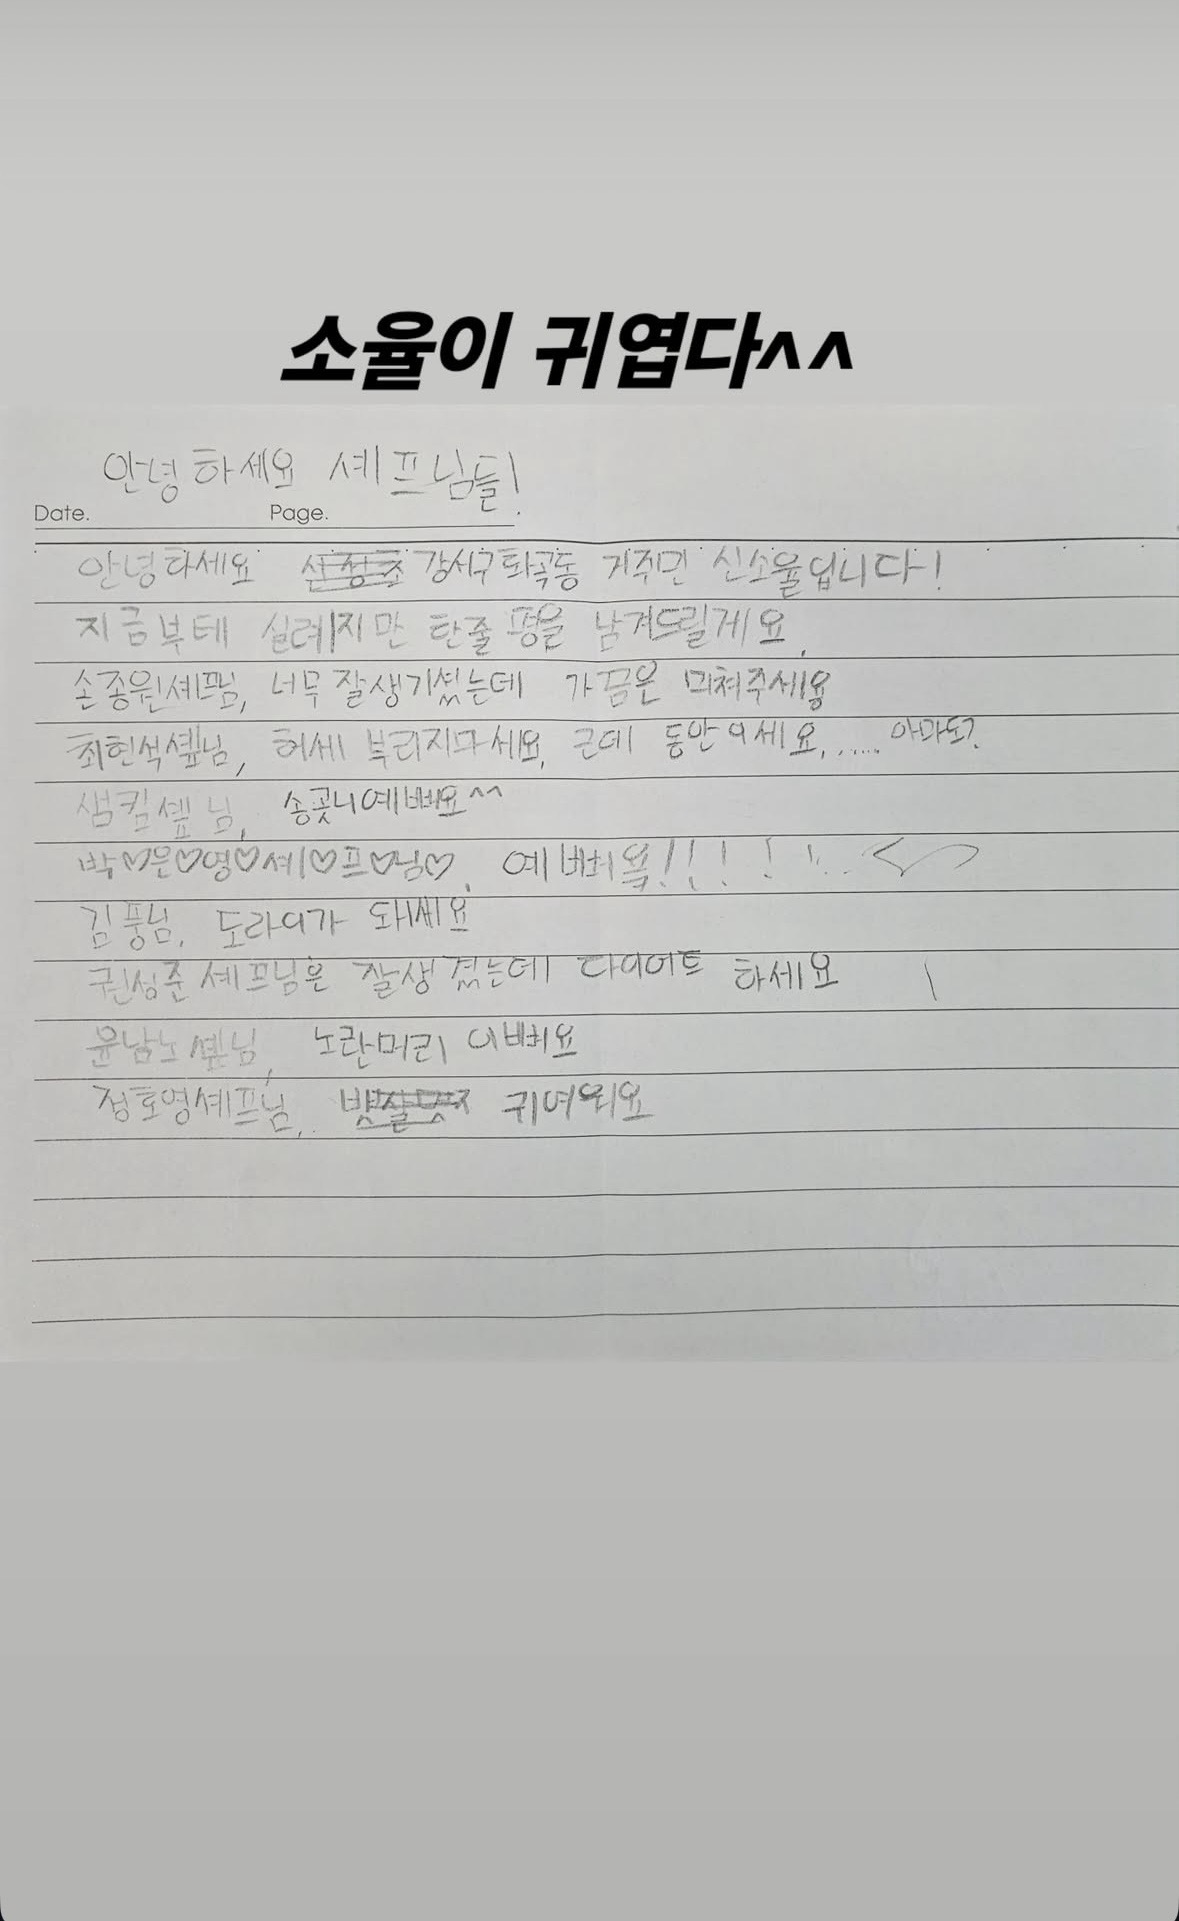 소율이 귀엽다^^
안녕하세요 셰프님들!
Date. Page.
안녕하세요 강서구 화곡동 거주민 신소율입니다!
지금부테 실례지만 한줄 평을 남겨드릴게요.
손종원셰프님, 너무 잘생기셨는데 가끔은 미쳐주세욯
최현석솊님, 허세 부리지마세요, 근데 동안이세요, ...... 아마도?
샘킴솊님, 송곳니예뻐요^^
박♡은♡영♡셰♡프♡님♡, 예뻐욬!!!!!!
김풍님, 도라이가 돼세요
권성준 셰프님은 잘생겼는데 다이어트 하세요
윤남노솊님, 노란머리 이뻐요
정호영셰프님, 귀여워요